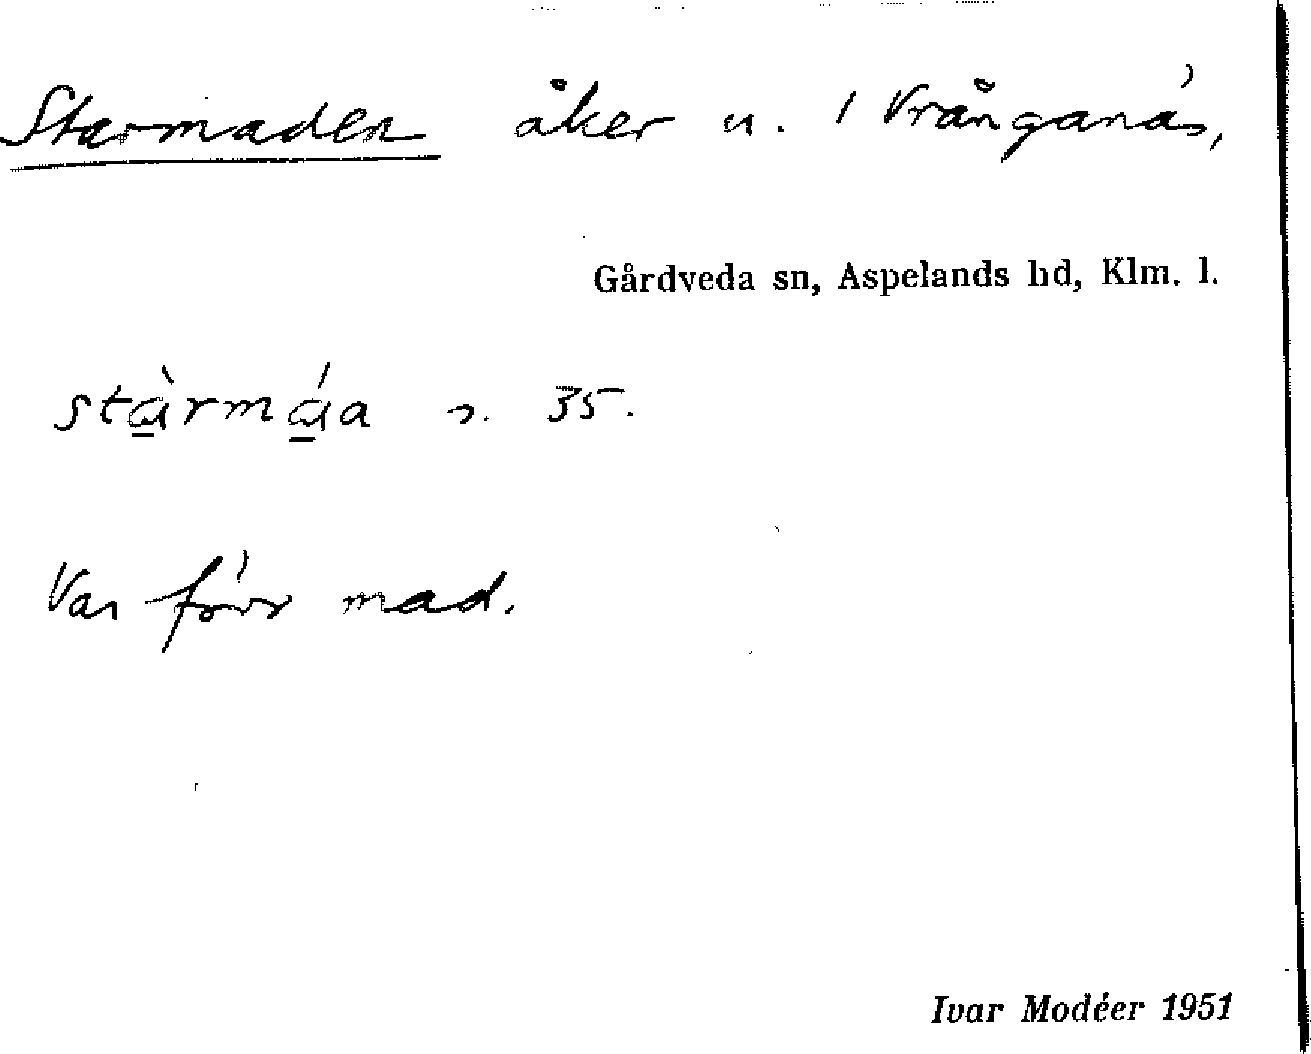 Starmaden åker u. 1 Vrånganäs,
Gårdveda sn, Aspelands hd, Klm. l.
stàrmáa s. 35.
Var förr mad.
Ivar Modéer 1951